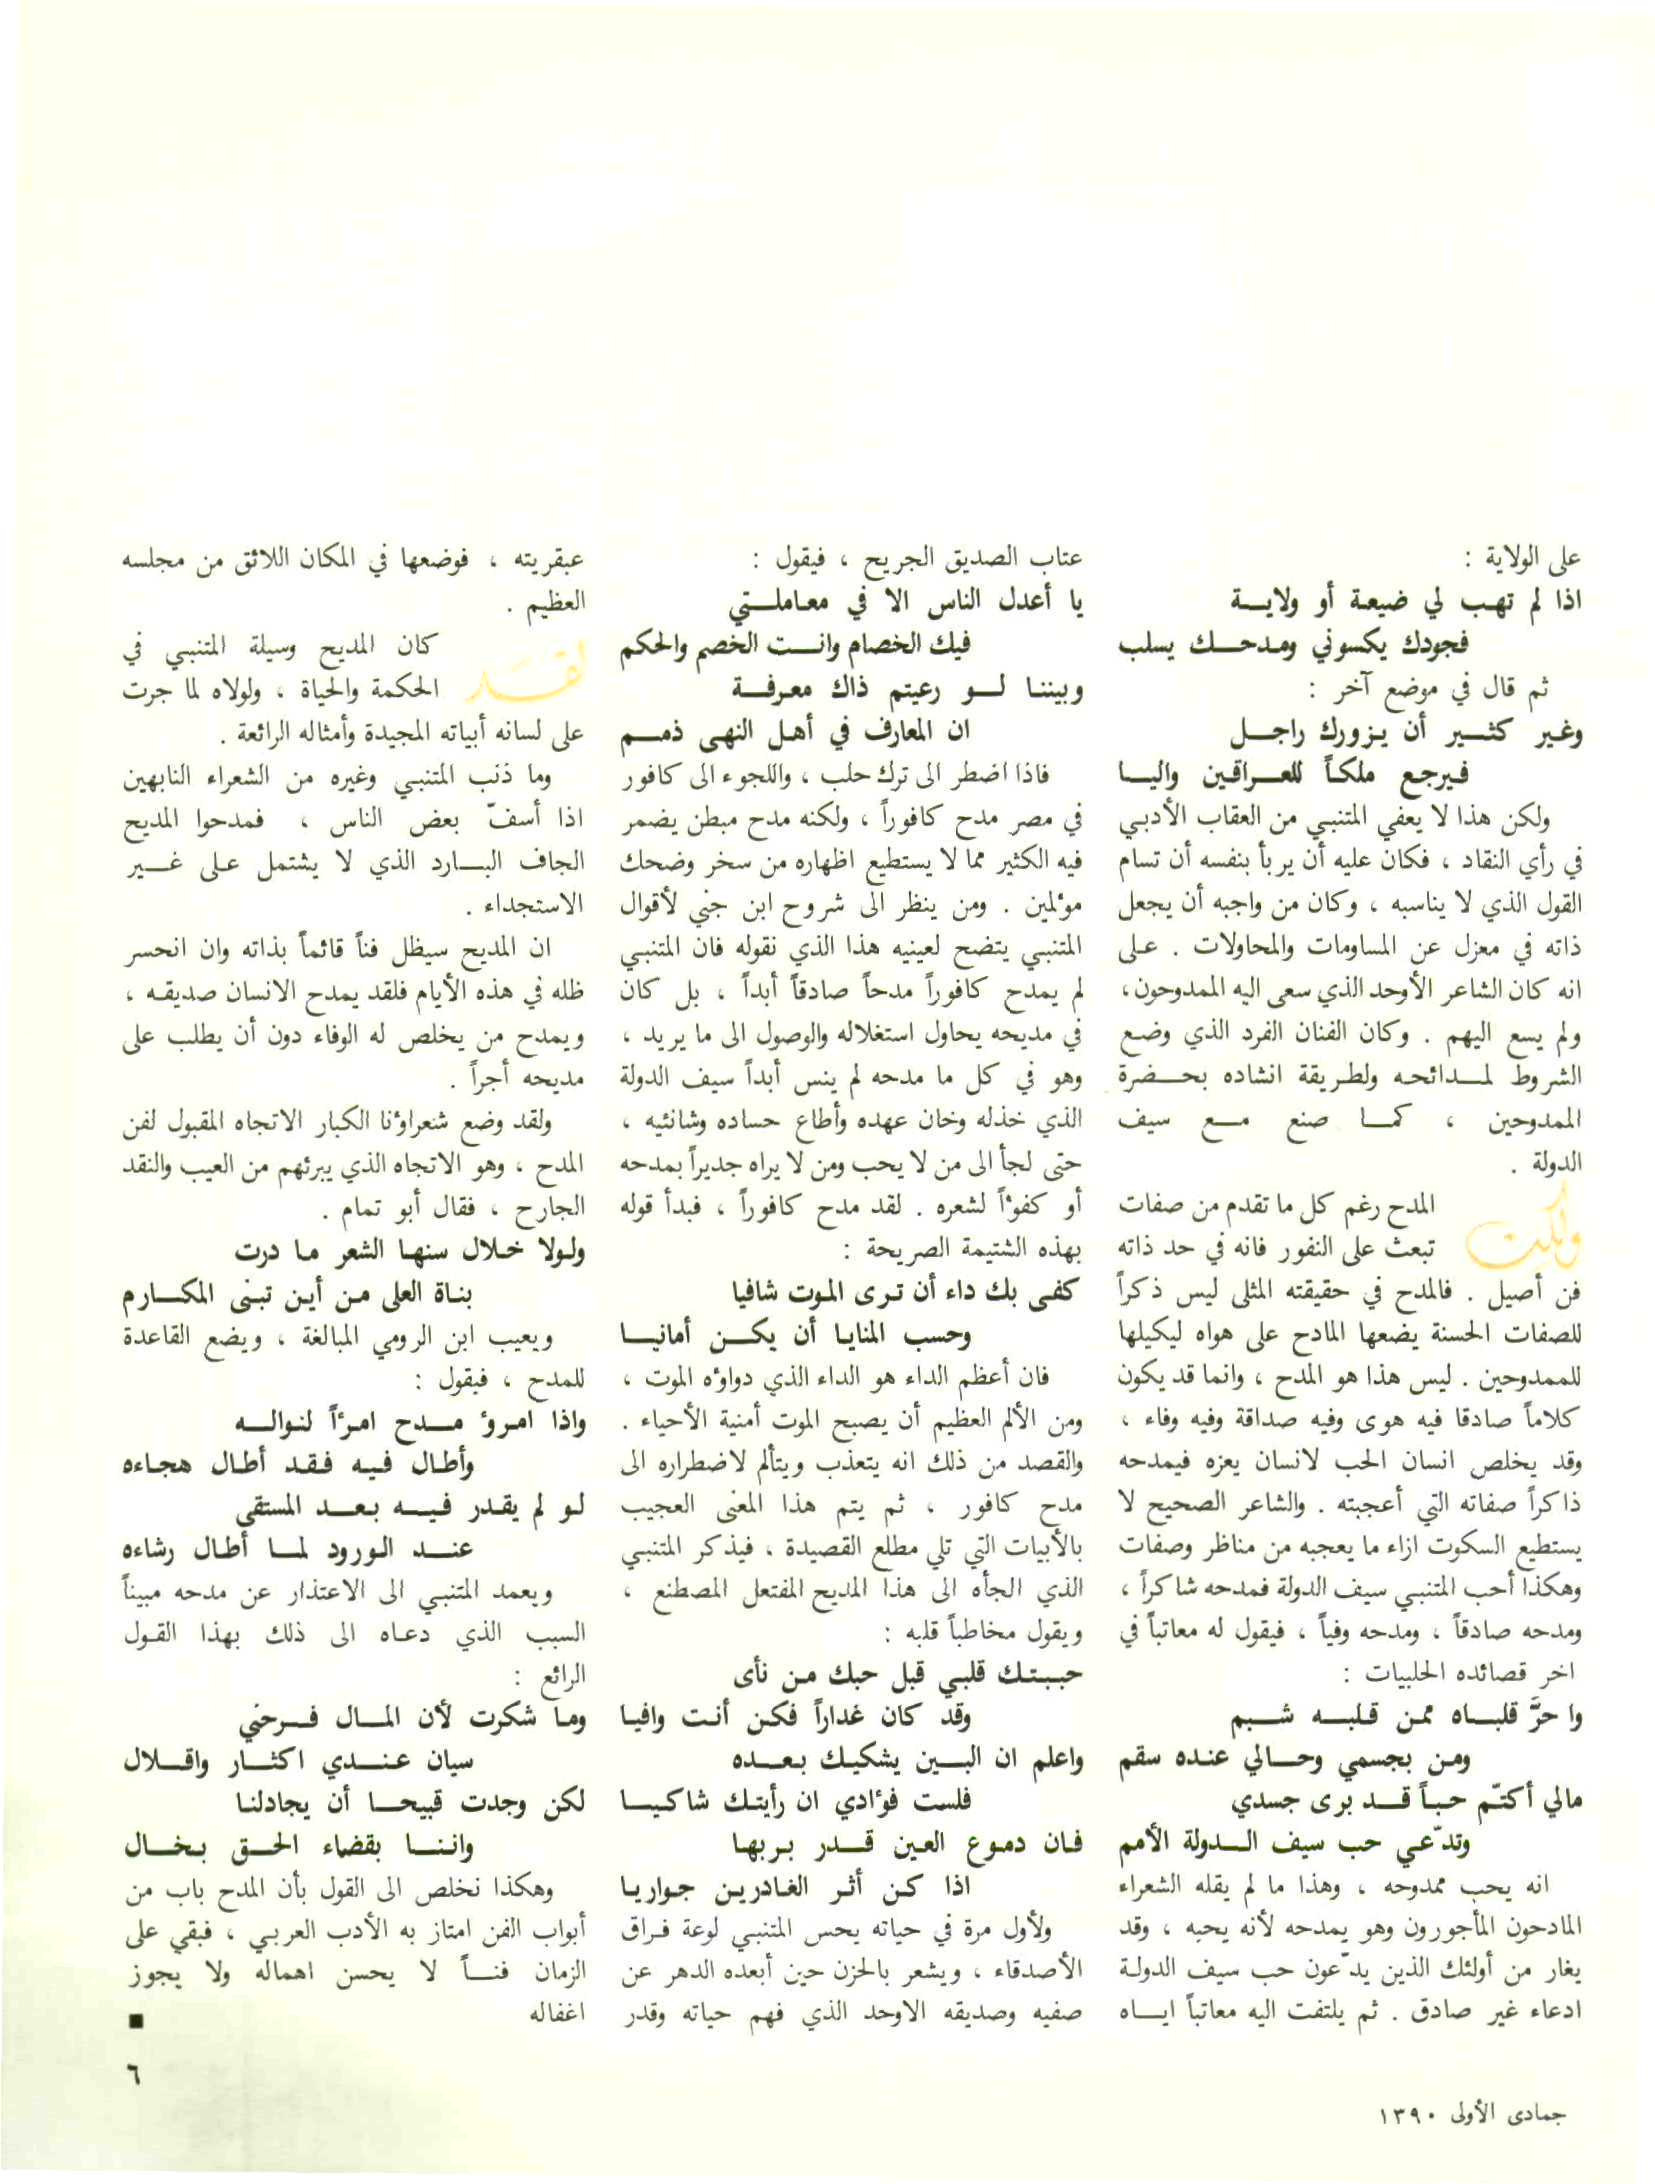 على الولاية :
اذا لم تهب لي ضيعة أو ولايـــة
فجودك يكسوني ومدحـــك يسلب
ثم قال في موضع آخر :
وغير كثـــير أن يزورك راجـــل
فيرجع ملكاً للعـــراقين واليـــا
ولكن هذا لا يعفي المتنبي من العقاب الأدبي
في رأي النقاد ، فكان عليه أن يربأ بنفسه أن تسام
القول الذي لا يناسبه ، وكان من واجبه أن يجعل
ذاته في معزل عن المساومات والمحاولات . على
انه كان الشاعر الأوحد الذي سعى اليه الممدوحون،
ولم يسع اليهم . وكان الفنان الفرد الذي وضع
الشروط لمـــدائحه ولطريقة انشاده بحـــضرة
الممدوحين ، كمـــا صنع مـــع سيف
الدولة .
ولكن المدح رغم كل ما تقدم من صفات
تبعث على النفور فانه في حد ذاته
فن أصيل . فالمدح في حقيقته المثلى ليس ذكراً
للصفات الحسنة يضعها المادح على هواه ليكيلها
للممدوحين . ليس هذا هو المدح ، وانما قد يكون
كلاماً صادقا فيه هوى وفيه صداقة وفيه وفاء ،
وقد يخلص انسان الحب لانسان يعزه فيمدحه
ذاكراً صفاته التي أعجبته . والشاعر الصحيح لا
يستطيع السكوت ازاء ما يعجبه من مناظر وصفات
وهكذا أحب المتنبي سيف الدولة فمدحه شاكراً ،
ومدحه صادقاً ، ومدحه وفياً ، فيقول له معاتباً في
اخر قصائده الحلبيات :
وا حرَّ قلبـــاه ممن قلبـــه شـــبم
ومن بجسمي وحـــالي عنده سقم
مالي أكتّم حبـاً قـــد برى جسدي
وتدّعي حب سيف الـــدولة الأمم
انه يحب ممدوحه ، وهذا ما لم يقله الشعراء
المادحون المأجورون وهو يمدحه لأنه يحبه ، وقد
يغار من أولئك الذين يدّعون حب سيف الدولة
ادعاء غير صادق . ثم يلتفت اليه معاتباً ايـــاه
عتاب الصديق الجريح ، فيقول :
يا أعدل الناس الا في معاملـــتي
فيك الخصام وانـــت الخصم والحكم
وبيننـا لـــو رعيتم ذاك معرفـــة
ان المعارف في أهل النهى ذمـــم
فاذا اضطر الى ترك حلب ، واللجوء الى كافور
في مصر مدح كافوراً ، ولكنه مدح مبطن يضمر
فيه الكثير مما لا يستطيع اظهاره من سخر وضحك
موٴلمين . ومن ينظر الى شروح ابن جني لأقوال
المتنبي يتضح لعينيه هذا الذي نقوله فان المتنبي
لم يمدح كافوراً مدحاً صادقاً أبداً ، بل كان
في مديحه يحاول استغلاله والوصول الى ما يريد ،
وهو في كل ما مدحه لم ينس أبداً سيف الدولة
الذي خذله وخان عهده وأطاع حساده وشانئيه ،
حتى لجأ الى من لا يحب ومن لا يراه جديراً بمدحه
أو كفوٴاً لشعره . لقد مدح كافوراً ، فبدأ قوله
بهذه الشتيمة الصريحة :
كفى بك داء أن ترى الموت شافيا
وحسب المنايـا أن يكـــن أمانيـــا
فان أعظم الداء هو الداء الذي دواوٴه الموت ،
ومن الألم العظيم أن يصبح الموت أمنية الأحياء .
والقصد من ذلك انه يتعذب ويتألم لاضطراره الى
مدح كافور ، ثم يتم هذا المعنى العجيب
بالأبيات التي تلي مطلع القصيدة ، فيذكر المتنبي
الذي الجأه الى هذا المديح المفتعل المصطنع ،
ويقول مخاطباً قلبه :
حببتك قلبي قبل حبك من نأى
وقد كان غداراً فكن أنت وافيا
واعلم ان البـــين يشكيك بعـــده
فلست فوٴادي ان رأيتك شاكيـــا
فـان دموع العين قـــدر بربهـا
اذا كـن أثر الغادرين جواريـا
ولأول مرة في حياته يحس المتنبي لوعة فراق
الأصدقاء ، ويشعر بالحزن حين أبعده الدهر عن
صفيه وصديقه الاوحد الذي فهم حياته وقدر
عبقريته ، فوضعها في المكان اللائق من مجلسه
العظيم .
لقـــد كان المديح وسيلة المتنبي في
الحكمة والحياة ، ولولاه لما جرت
على لسانه أبياته المجيدة وأمثاله الرائعة .
وما ذنب المتنبي وغيره من الشعراء النابهين
اذا أسفّ بعض الناس ، فمدحوا المديح
الجاف البـــارد الذي لا يشتمل على غـــير
الاستجداء .
ان المديح سيظل فناً قائماً بذاته وان انحسر
ظله في هذه الأيام فلقد يمدح الانسان صديقه ،
ويمدح من يخلص له الوفاء دون أن يطلب على
مديحه أجراً .
ولقد وضع شعراوٴنا الكبار الاتجاه المقبول لفن
المدح ، وهو الاتجاه الذي يبرئهم من العيب والنقد
الجارح ، فقال أبو تمام .
ولولا خلال سنها الشعر ما درت
بناة العلى من أين تبنى المكـــارم
ويعيب ابن الرومي المبالغة ، ويضع القاعدة
للمدح ، فيقول :
واذا امروٴ مـــدح امرٴاً لنوالـــه
وأطال فيه فقد أطال هجاءه
لو لم يقدر فيـــه بعـــد المستقى
عنـــد الورود لمـــا أطال رشاءه
ويعمد المتنبي الى الاعتذار عن مدحه مبيناً
السبب الذي دعاه الى ذلك بهذا القول
الرائع :
وما شكرت لأن المـــال فـــرحني
سيان عنـــدي اكثـــار واقـــلال
لكن وجدت قبيحـــا أن يجادلنـا
واننـــا بقضاء الحـــق بخـــال
وهكذا نخلص الى القول بأن المدح باب من
أبواب الفن امتاز به الأدب العربي ، فبقي على
الزمان فنـــاً لا يحسن اهماله ولا يجوز
اغفاله ■
٦
جمادى الأولى ١٣٩٠